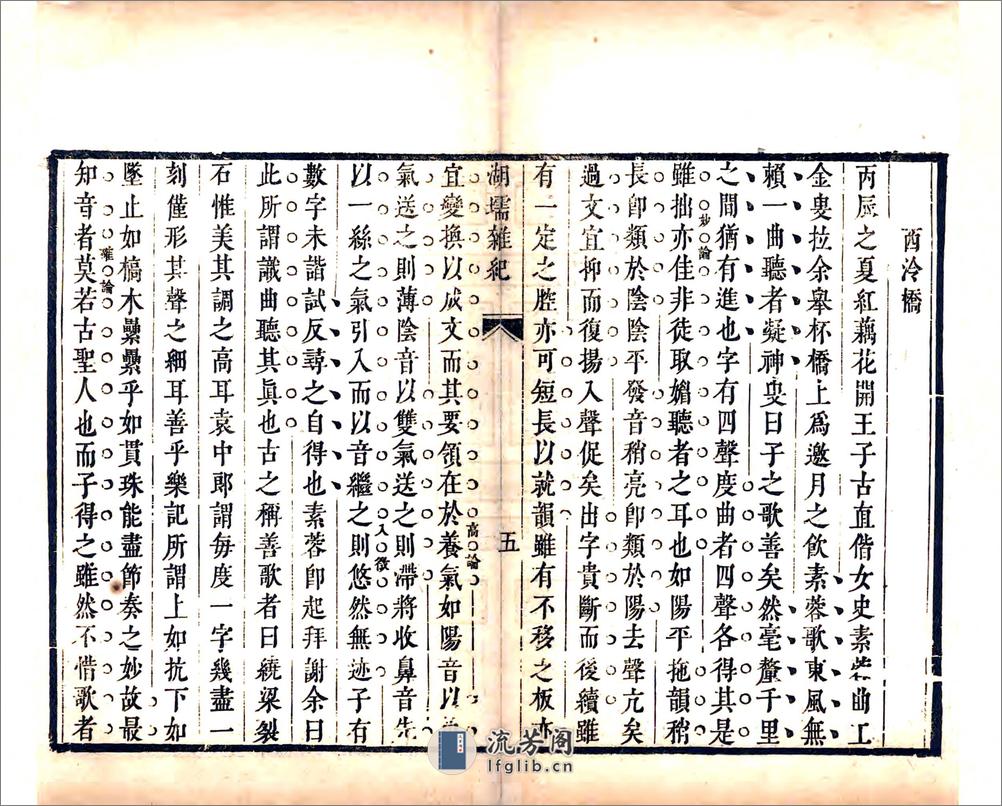 西泠橋
丙辰之夏紅藕花開王子古直偕女史素蓉曲工
金叟拉余舉杯橋上爲邀月之飲素蓉歌東風無
賴一曲聽者凝神叟曰子之歌善矣然毫釐千里
之間猶有進也字有四聲度曲者四聲各得其是
妙論
雖拙亦佳非徒取媚聽者之耳也如陽平拖韻稍
長卽類於陰陰平發音稍亮卽類於陽去聲亢矣
過文宜抑而復揚入聲促矣出字貴斷而後續雖
有一定之腔亦可短長以就韻雖有不移之板亦
湖壖雜紀
五
高論
宜變換以成文而其要領在於養氣如陽音以
氣送之則薄陰音以雙氣送之則滯將收鼻音先
入微
以一絲之氣引入而以音繼之則悠然無迹子有
數字未諧試反尋之自得也素蓉卽起拜謝余曰
此所謂識曲聽其眞也古之稱善歌者曰繞梁裂
石惟美其調之高耳袁中郎謂每度一字幾盡一
刻僅形其聲之細耳善乎樂記所謂上如抗下如
墜止如槁木纍纍乎如貫珠能盡節奏之妙故最
確論
知音者莫若古聖人也而子得之雖然不惜歌者
流芳阁
lfglib.cn